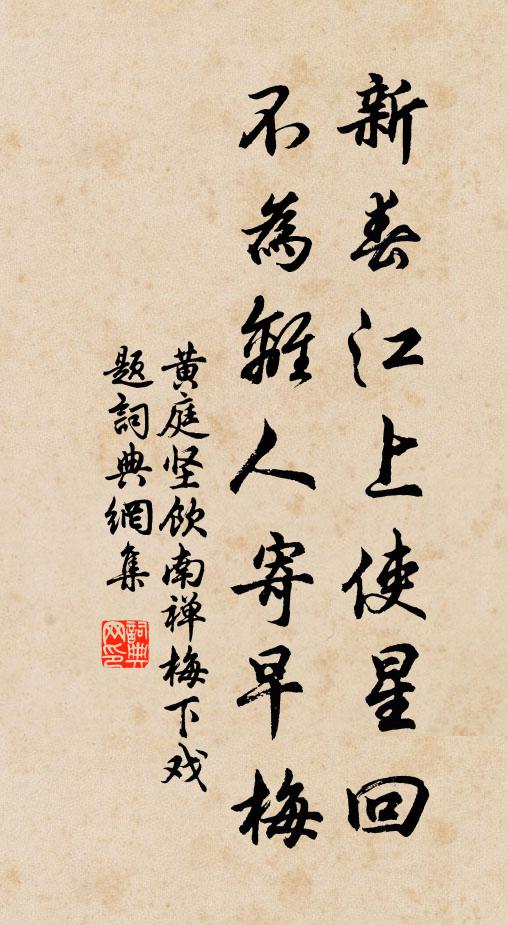 新春江上使星回
不為離人寄早梅
黄庭坚飲南禅梅下戏
題詞典網集
詞典
网印